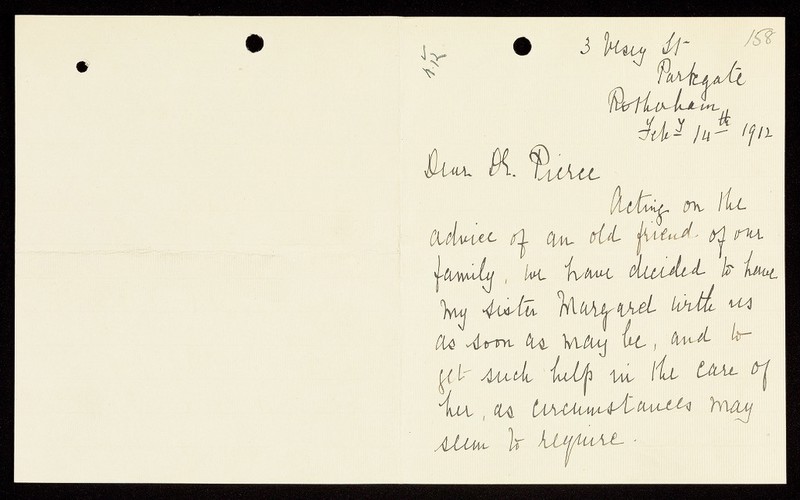 158
3 Vesey St
Parkgate
Rotherham
Feby 14th 1912
Dear Dr. Pierce
Acting on the
advice of an old friend of our
family, we have decided to have
my sister Margard with us
as soon as may be, and to
get such help in the care of
her, as circumstances may
seem to require.